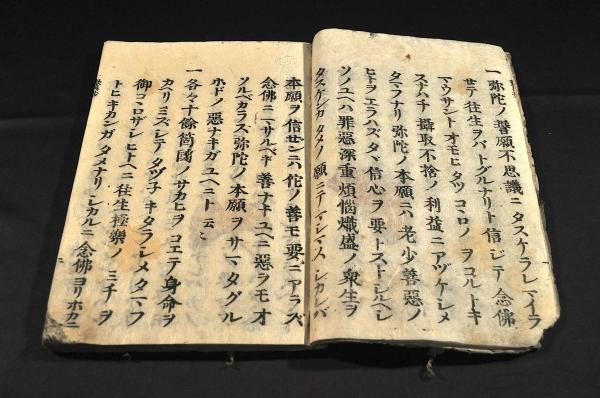 一 弥陀ノ誓願不思議ニタスケラレマイラ
セテ往生ヲバトグルナリト信ジテ念佛
マウサントオモヒタツコヽロノヲコルトキ
スナハチ攝取不捨ノ利益ニアヅケシメ
タマフナリ弥陀ノ本願ニハ老少善惡ノ
ヒトヲエラハズタヾ信心ヲ要トストシルヘシ
ソノユヘハ罪惡深重煩惱熾盛ノ衆生ヲ
タスケンカタメノ願ニテマシマスシカレバ
本願ヲ信センニハ佗ノ善モ要ニアラズ
念佛ニマサルベキ善ナキユヘニ惡ヲモオ
ソルベカラズ弥陀ノ本願ヲサマタグル
ホドノ惡ナキガユヘニト云々
一 各々十餘箇國ノサカヒヲコエテ身命ヲ
カヘリミズシテタヅ子キタラシメタマフ
御コヽロザシヒトヘニ往生極樂ノミチヲ
トヒキカンガタメナリシカルニ念佛ヨリホカニ